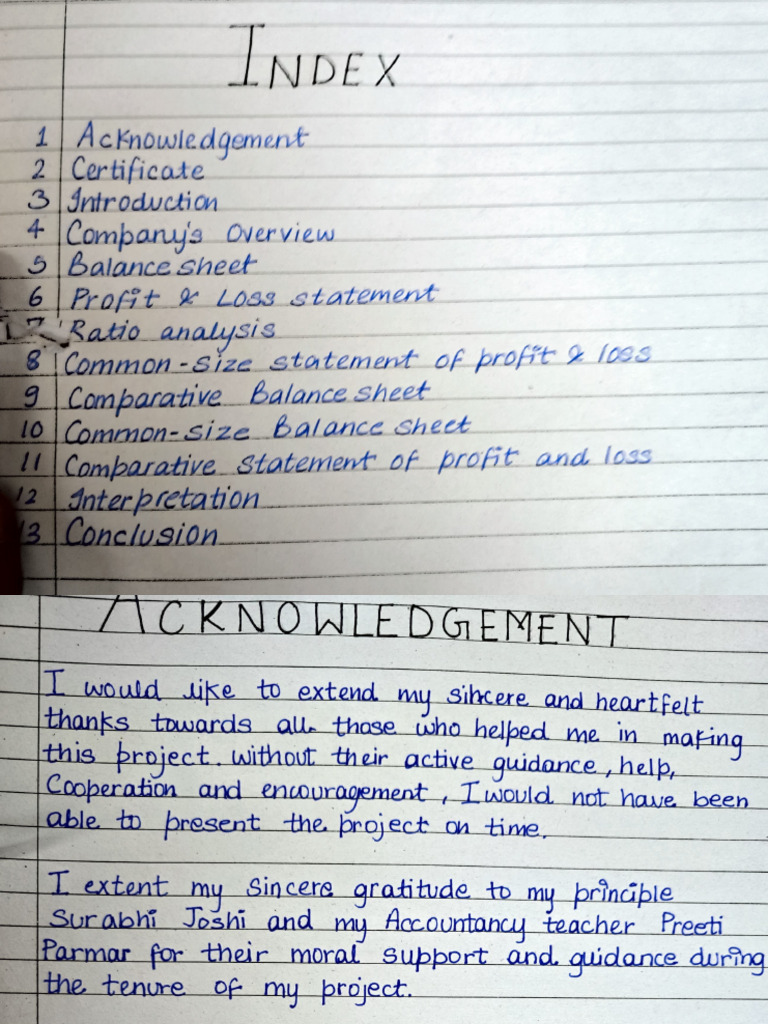 INDEX
1 Acknowledgement
2 Certificate
3 Introduction
4 Company's Overview
5 Balance sheet
6 Profit & Loss statement
7 Ratio analysis
8 Common-size statement of profit & loss
9 Comparative Balance sheet
10 Common-size Balance sheet
11 Comparative statement of profit and loss
12 Interpretation
13 Conclusion
ACKNOWLEDGEMENT
I would like to extend my sincere and heartfelt
thanks towards all those who helped me in making
this project. without their active guidance, help,
Cooperation and encouragement, I would not have been
able to present the project on time.
I extent my Sincere gratitude to my principle
Surabhi Joshi and my Accountancy teacher Preeti
Parmar for their moral support and guidance during
the tenure of my project.